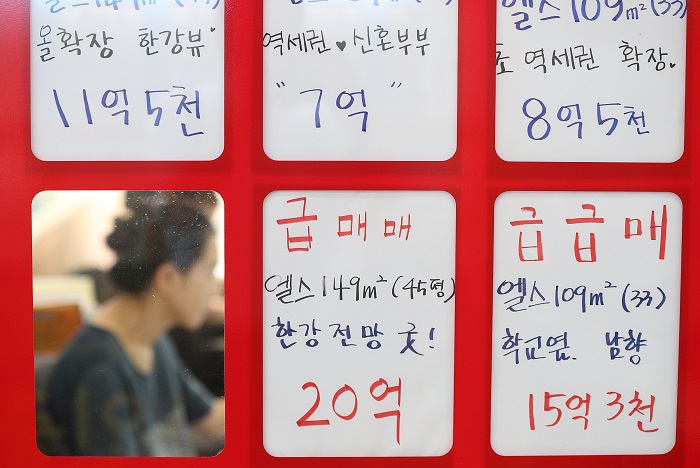 엘스149m²(
올확장 한강뷰
11억 5천
역세권♥신혼부부
"7억"
엘스109m²(33)
초 역세권 확장.
8억 5천
급매매
엘스149m²(45평)
한강전망 굿!
20억
급급매
엘스109m²(33)
학교옆. 남향
15억 3천